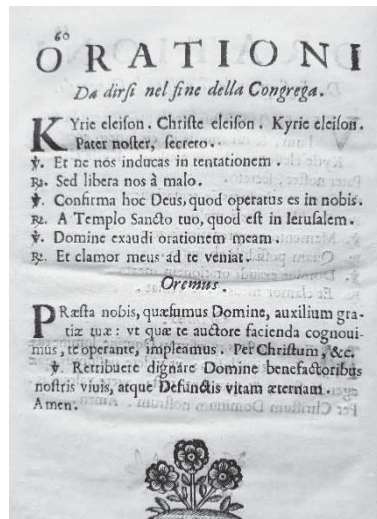 60
ORATIONI
Da dirsi nel fine della Congrega.
KYrie eleison. Christe eleison. Kyrie eleison.
Pater noster, secreto.
℣. Et ne nos inducas in tentationem.
℟. Sed libera nos à malo.
℣. Confirma hoc Deus, quod operatus es in nobis.
℟. A Templo Sancto tuo, quod est in Ierusalem.
℣. Domine exaudi orationem meam.
℟. Et clamor meus ad te veniat.
Oremus.
PRæsta nobis, quæsumus Domine, auxilium gra-
tiæ tuæ: vt quæ te auctore facienda cognoui-
mus, te operante, impleamus. Per Christum, &c.
℣. Retribuere dignare Domine benefactoribus
nostris viuis, atque Defunctis vitam æternam.
Amen.